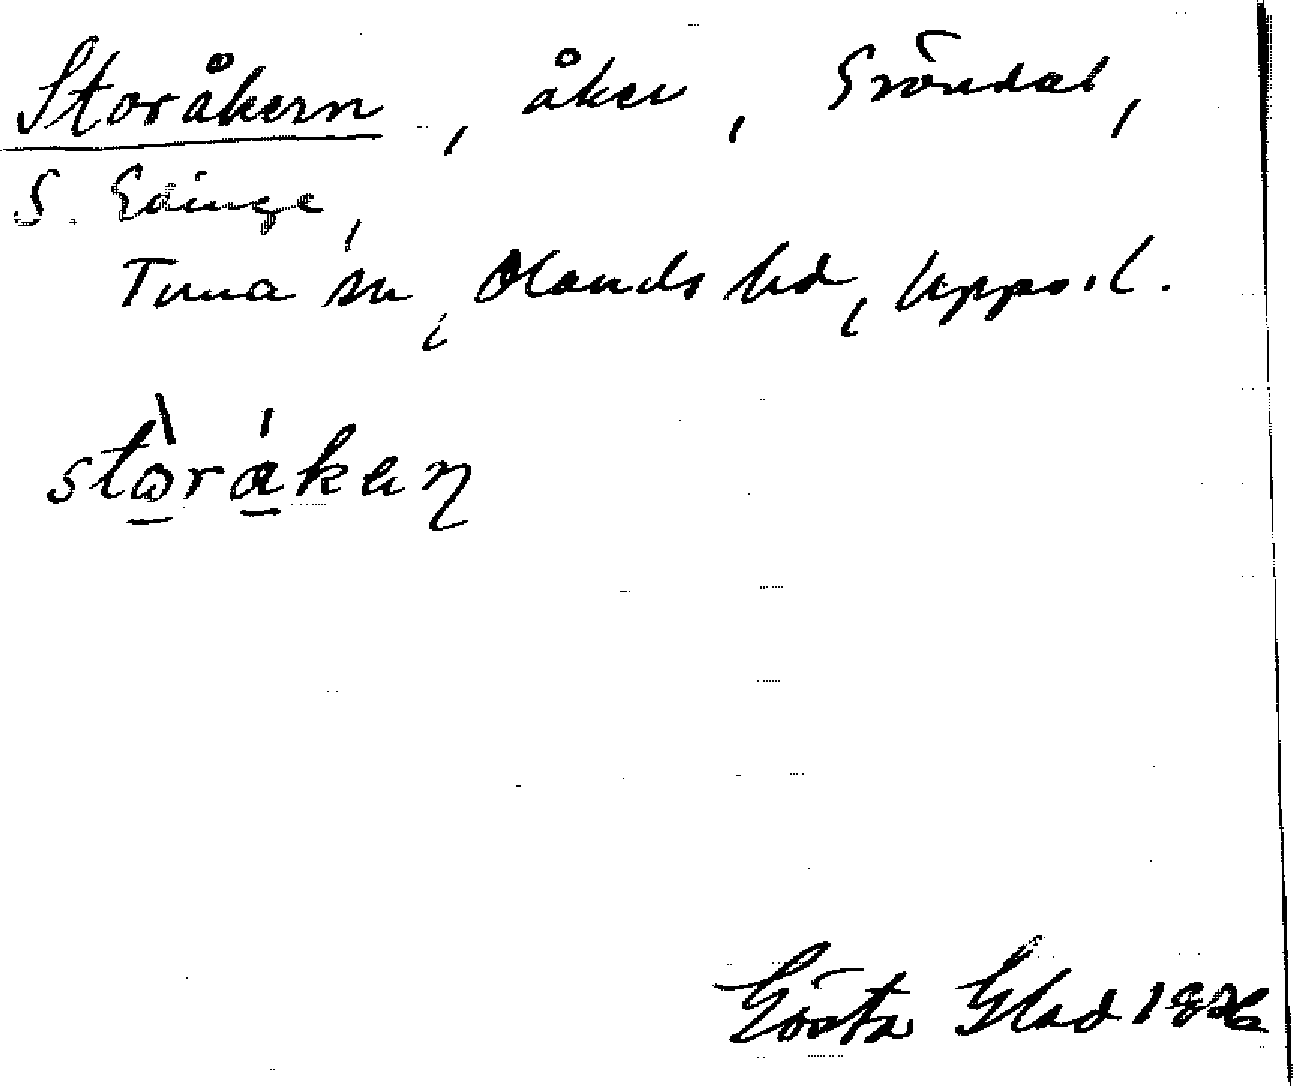 Storåkern, åker, Gröndal,
S. Edinge,
Tuna sn, Olands hd, Upps. l.
stòrákaɳ
Gösta Glad 1926